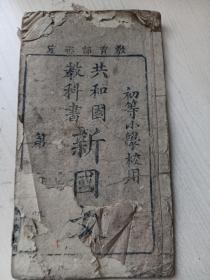 教育部審定
初等小學校用
共和國
教科書
新國文
第